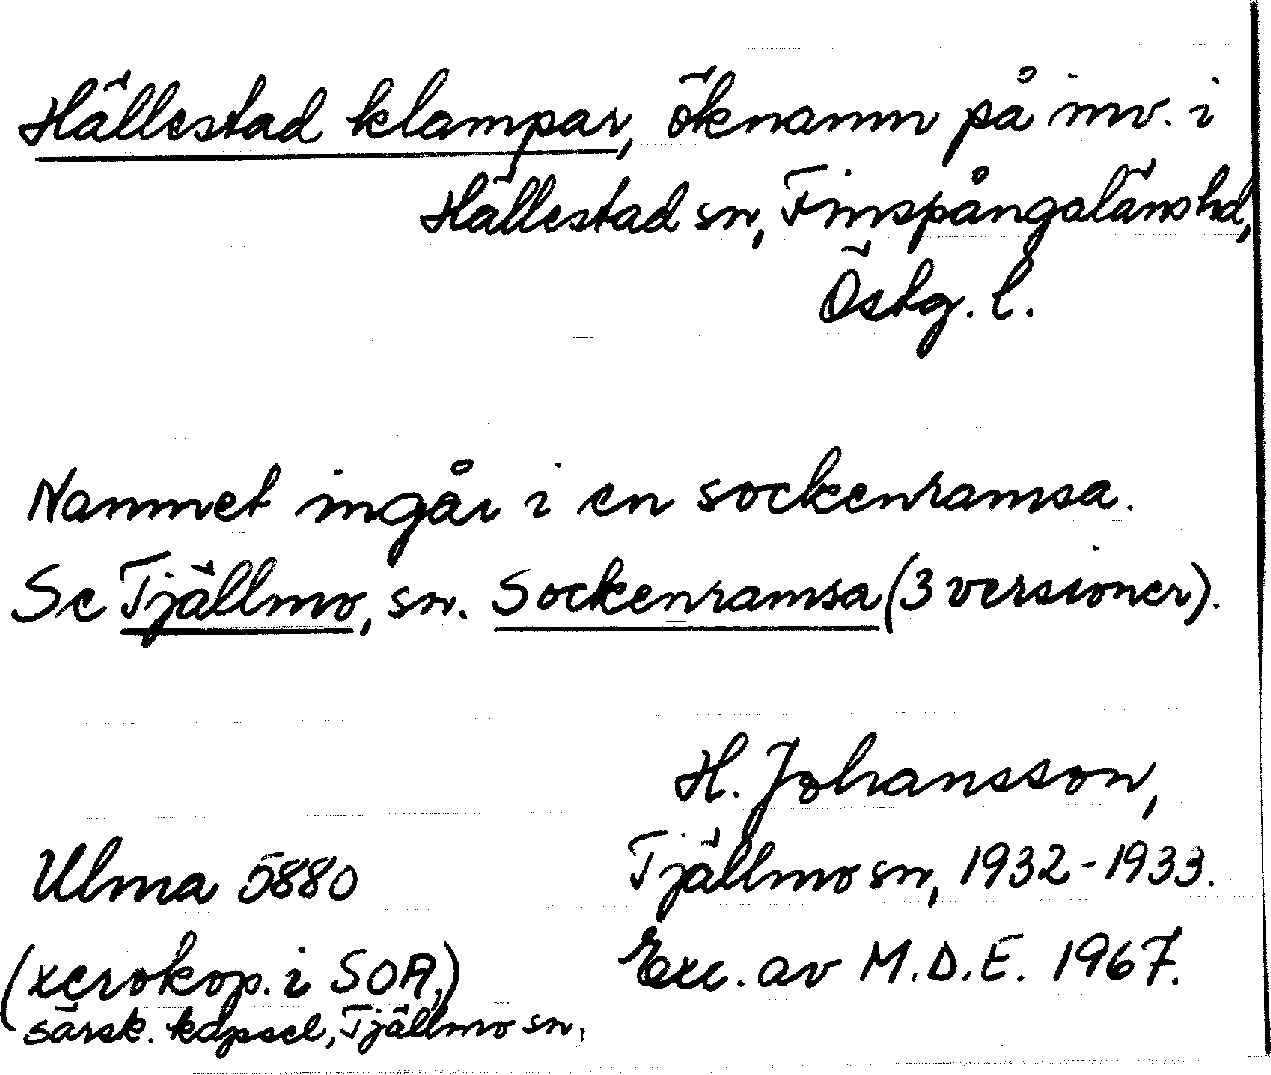 Hällestad klampar, öknamn på inv. i
Hällestad sn, Finspångalänshd,
Östg. l.
Namnet ingår i en sockenramsa.
Se Tjällmo, sn. Sockenramsa (3 versioner).
H. Johansson,
Tjällmo sn, 1932-1933.
Ulma 5880
Exc. av M.D.E. 1967.
(xerokop. i SOA,)
särsk. kapsel, Tjällmo sn,